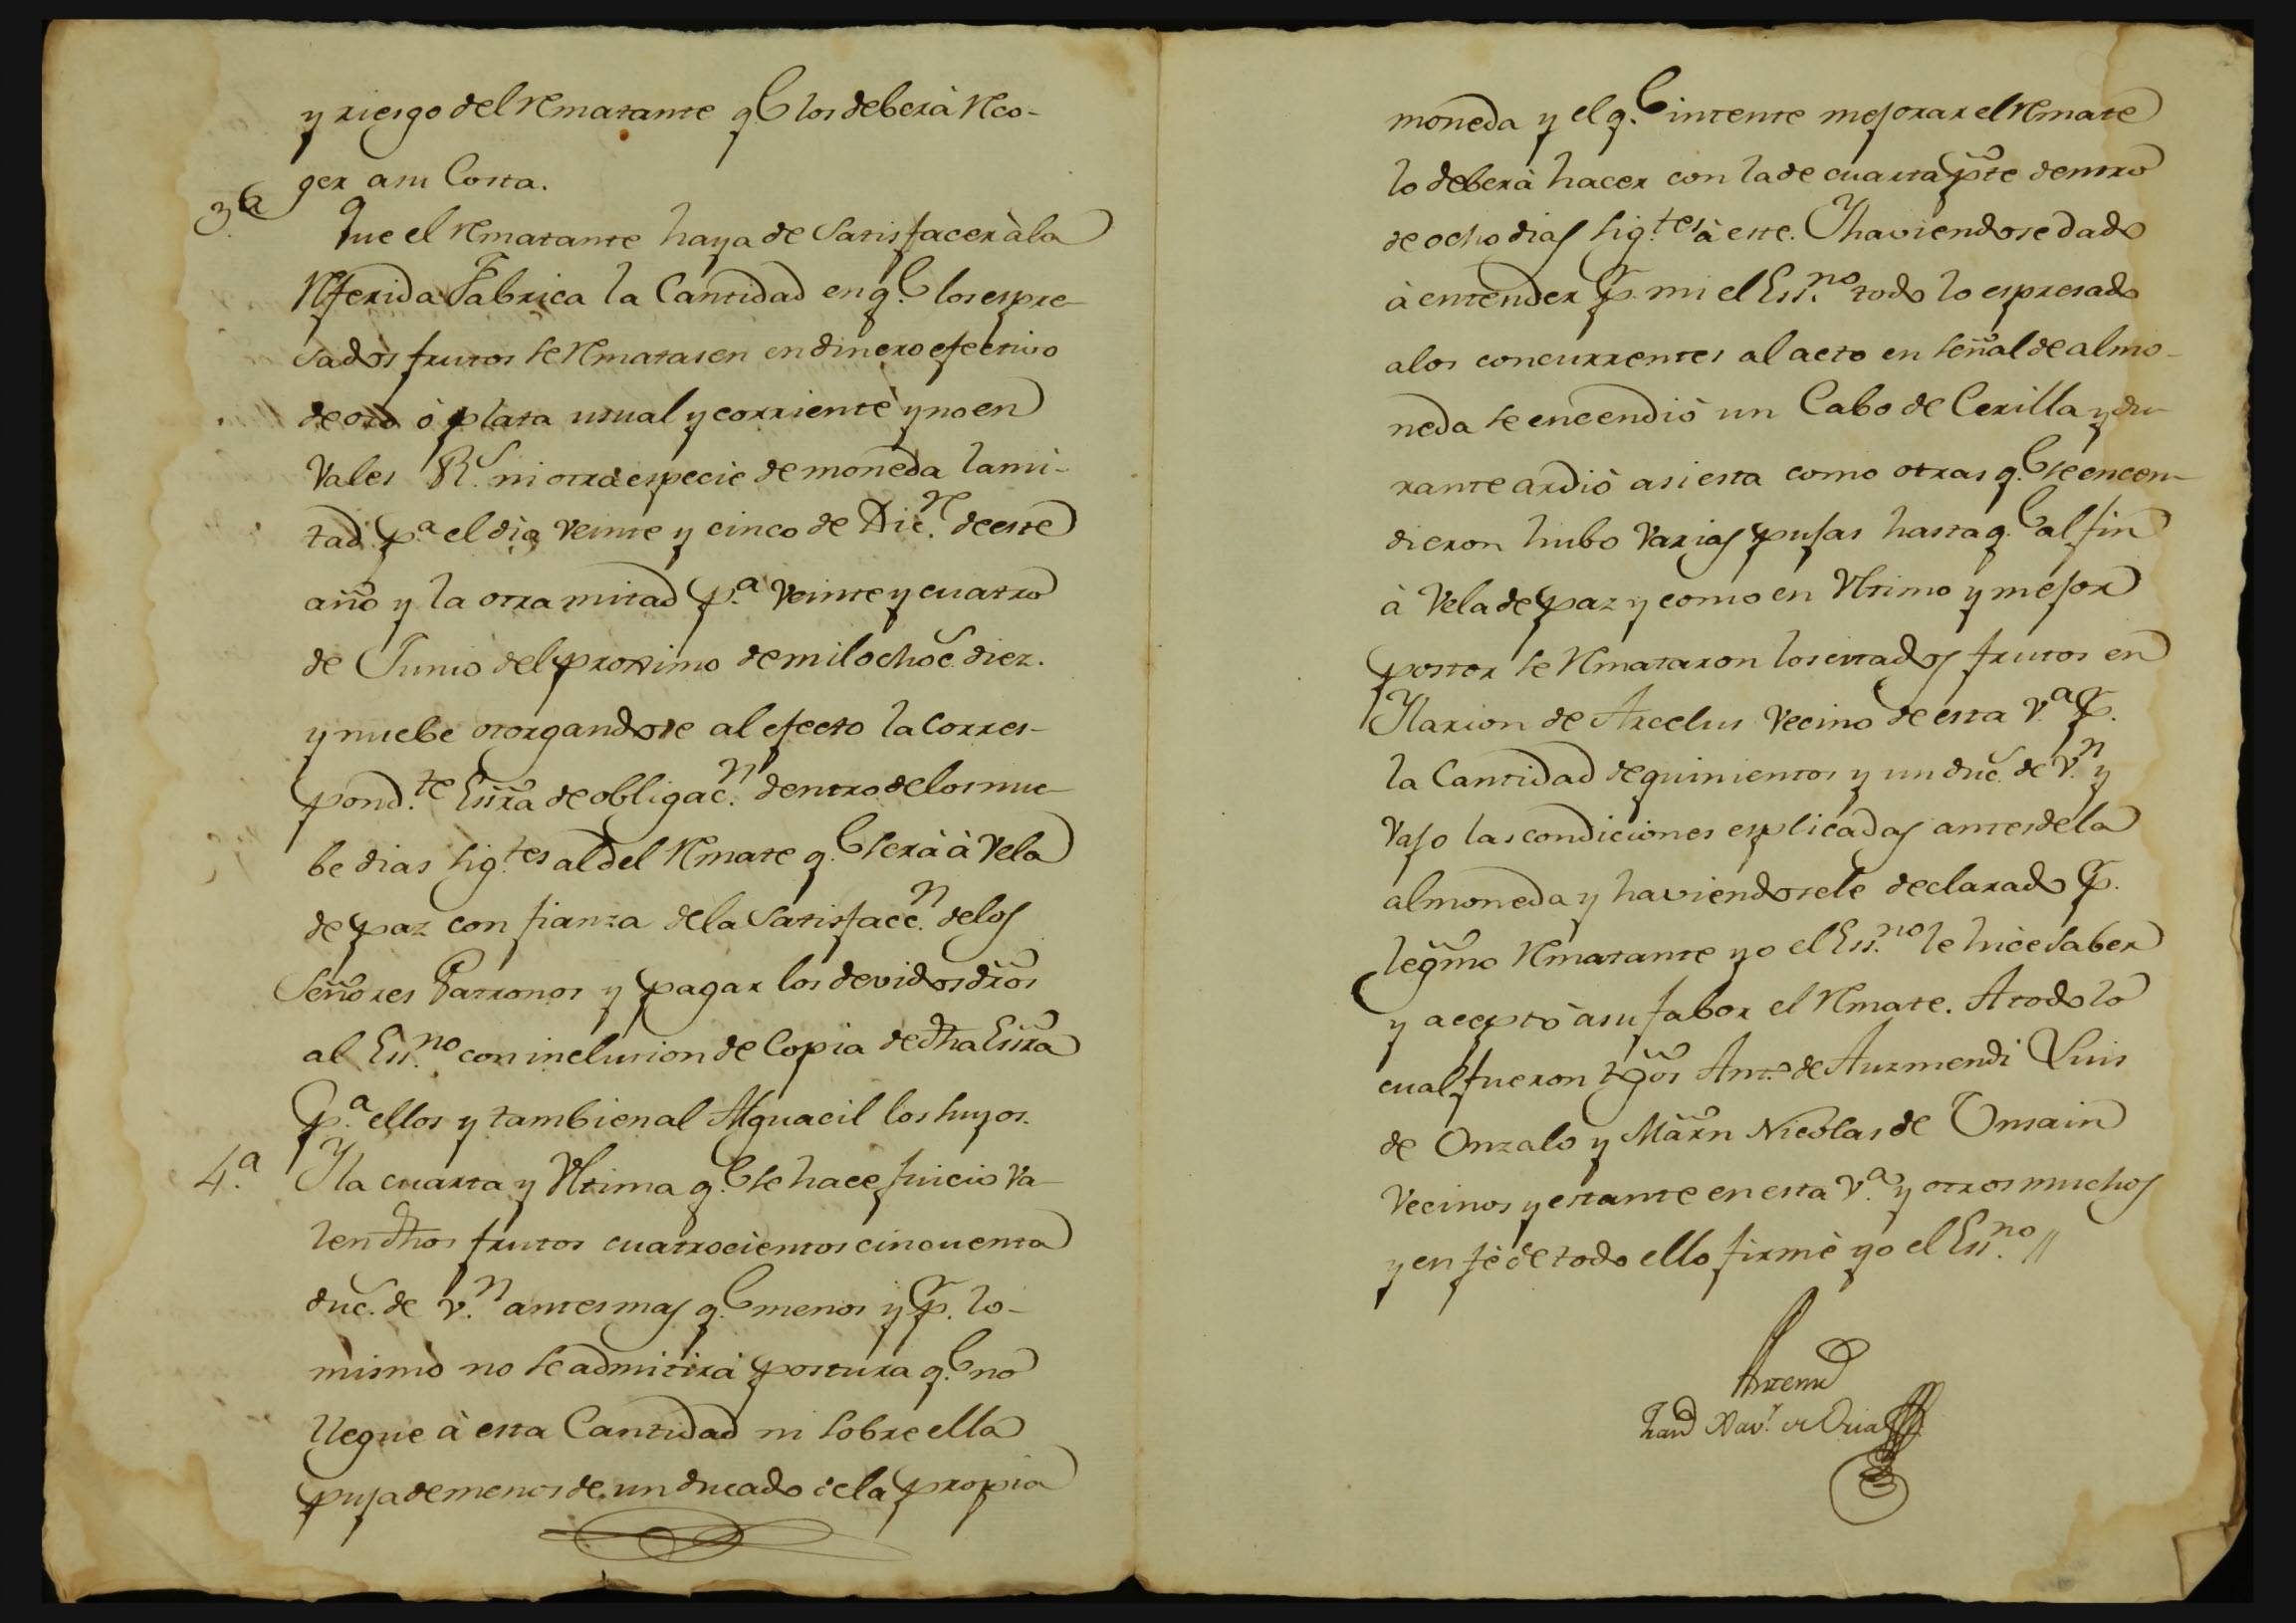 y riesgo del rematante q.e los deberà reco-
ger a su Costa.
3.a Que el rematante haya de Satisfacer à la
referida Fabrica la Cantidad en q.e los espre-
sados frutos se rematasen en dinero efectivo
de oro ò plata usual y corriente y no en
Vales R.s ni otra especie de moneda la mi-
tad p.a el dia veinte y cinco de Dic.re de este
año y la otra mitad p.a veinte y cuatro
de Junio del proximo de mil ochoc.s diez.
y nuebe otorgandose al efecto la Corres-
pond.te Essra de obligac.n dentro de los nue-
be dias sig.tes al del remate q.e serà à Vela
de paz con fianza de la Satisfacc.n de los
Señores Patronos y pagar los devidos dros
al Ess.no con inclusion de Copia de dha Essra
p.a ellos y tambien al Alguacil los suyos.
4.a Y la cuarta y Vltima q.e se hace juicio va-
len dhos frutos cuatrocientos cincuenta
duc.s de v.n antes mas q.e menos y p.r lo-
mismo no se admitirà postura q.e no
llegue à esta Cantidad ni sobre ella
puja de menos de un ducado de la propia
moneda y el q.e intente mejorar el remate
lo deberà hacer con la de cuarta pte dentro
de ocho dias sig.tes à este. Y haviendose dado
à entender p.r mi el Ess.no todo lo espresado
a los concurrentes al acto en señal de almo-
neda se encendiò un Cabo de Cerilla y du-
rante ardiò asi esta como otras q.e se encen-
dieron hubo varias pujas hasta q.e al fin
à Vela de paz y como en Vltimo y mejor
postor se remataron los citados frutos en
Ylarion de Arcelus vecino de esta v.a p.r
la Cantidad de quinientos y un duc.s de v.n y
vajo las condiciones esplicadas antes de la
almoneda y haviendosele declarado p.r
legmo rematante yo el Ess.no le hice saber
y aceptò a su fabor el remate. A todo lo
cual fueron tgos Ant.o de Auzmendi Luis
de Onzalo y Marn Nicolas de Onsain
vecinos y estante en esta v.a y otros muchos
y en fè de todo ello firmè yo el Ess.no //
Antemi
Xav.r de Oria